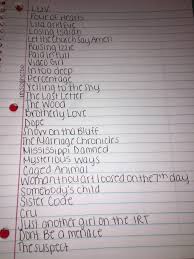 LUV
Four of Hearts
Lila and Eve
Losing Isaiah
Let the Church Say Amen
Raising Izzie
Paid in full
Video Girl
In too deep
Percentage
Yelling to the sky
The Last Letter
The Wood
Brotherly Love
Dope
Snow on tha Bluff
The Marriage Chronicles
Mississippi Damned
Mysterious ways
Caged Animal
Woman thou art loosed on the 7th day
Somebody's child
Sister Code
Cru
Just another girl on the IRT
Dont Be a menace
The suspect